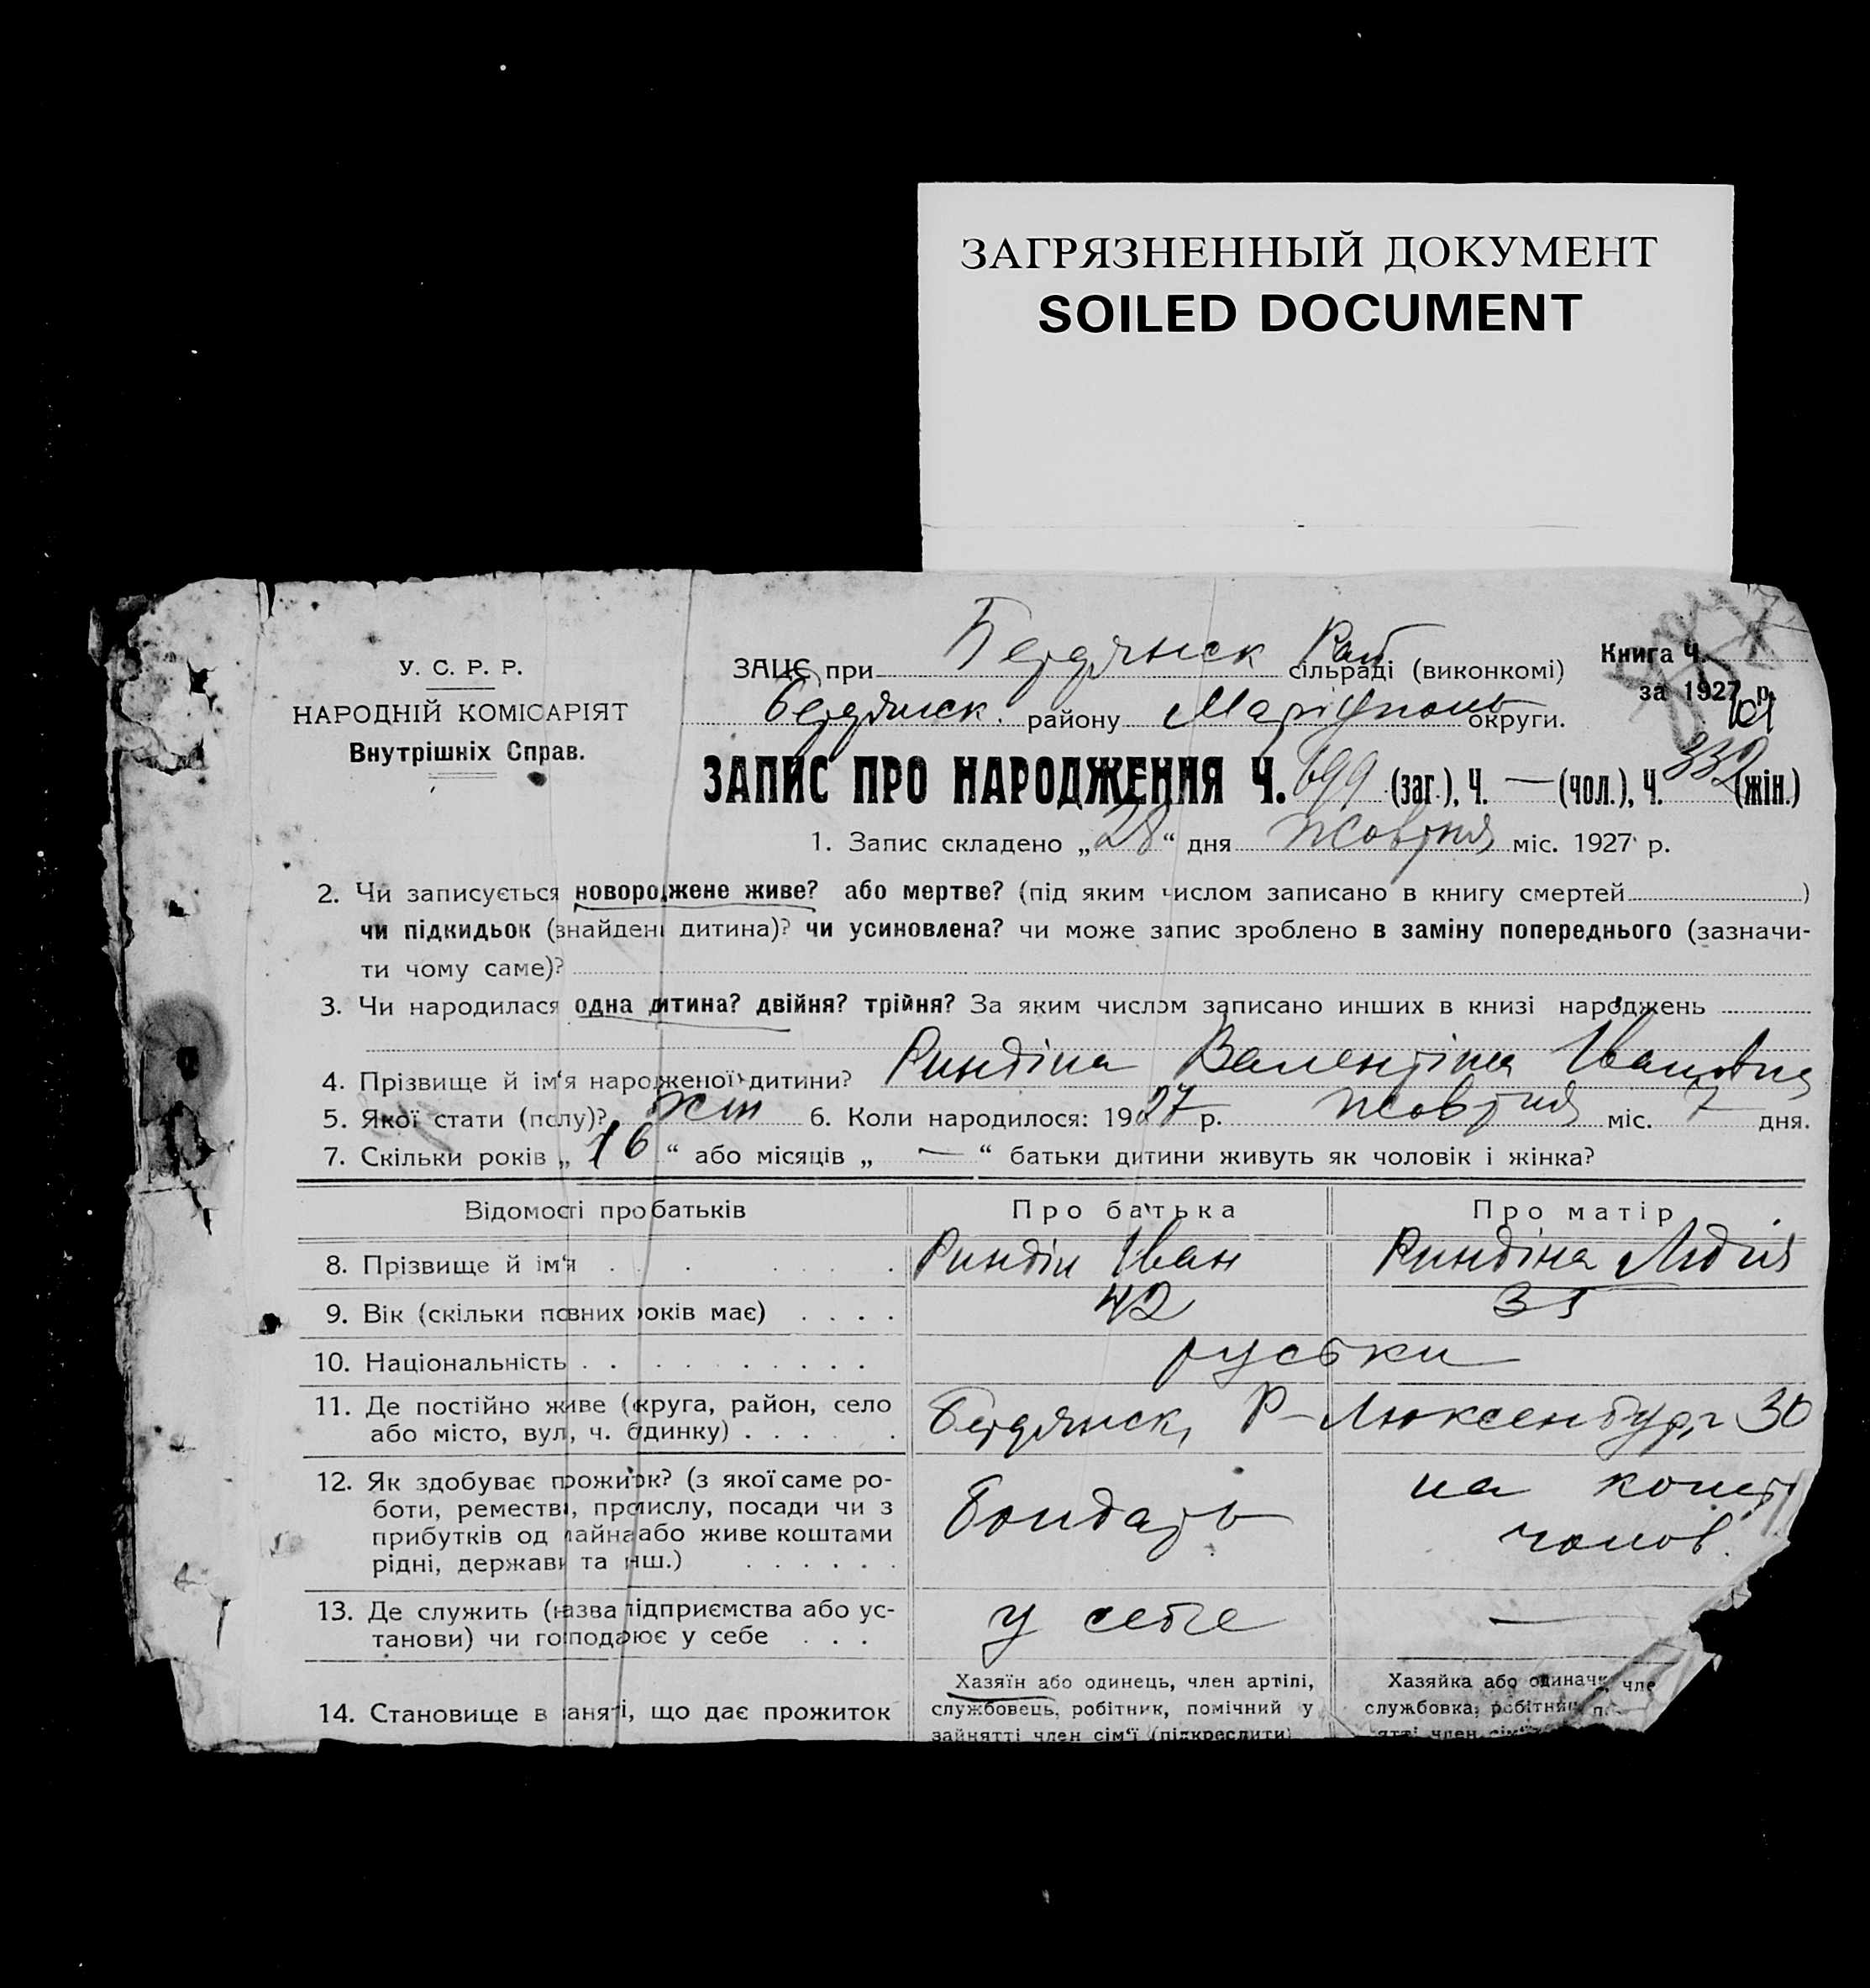 ЗАГРЯЗНЕННЫЙ ДОКУМЕНТ
SOILED DOCUMENT
У. С. Р. Р.
НАРОДНІЙ КОМІСАРІЯТ
Внутрішніх Справ.
ЗАЦС при Бердянск Рай сільраді (виконкомі)
Бердянск. району Маріуполь округи.
Книга Ч.
за 1927 р.
ЗАПИС ПРО НАРОДЖЕННЯ Ч. 699 (заг.), Ч. — (чол.), Ч. 332 (жін.)
1. Запис складено „28“ дня Жовтня міс. 1927 р.
2. Чи записується новороджене живе? або мертве? (під яким числом записано в книгу смертей )
чи підкидьок (знайдена дитина)? чи усиновлена? чи може запис зроблено в заміну попереднього (зазначи-
ти чому саме)?
3. Чи народилася одна дитина? двійня? трійня? За яким числом записано инших в книзі народжень
4. Прізвище й ім'я народженої дитини? Риндіна Валентіна Івановна
5. Якої стати (полу)? жін 6. Коли народилося: 1927 р. Жовтня міс. 7 дня.
7. Скільки років „16“ або місяців „ — “ батьки дитини живуть як чоловік і жінка?
Відомості про батьків Про батька Про матір
8. Прізвище й ім'я . . . . . . . Риндін Іван Риндіна Лідия
9. Вік (скільки повних років має) . . . . 42 35
10. Національність . . . . . . . . . . руські
11. Де постійно живе (округа, район, село
або місто, вул., ч. будинку) . . . . . . Бердянск, Р-Люксенбург 30
12. Як здобуває прожиток? (з якої саме ро-
боти, ремества, промислу, посади чи з
прибутків од майна або живе коштами
рідні, держави та инш.) . . . . . .
Бондарь
на кошт
чолов.
13. Де служить (назва підприємства або ус-
танови) чи господарює у себе . . .
у себе —
14. Становище в занятті, що дає прожиток
Хазяїн або одинець, член артілі,
службовець, робітник, помічний у
зайнятті член сім'ї (підкреслити)
Хазяйка або одиначка, чле
службовка, робітниця, п
ятті член сім'ї